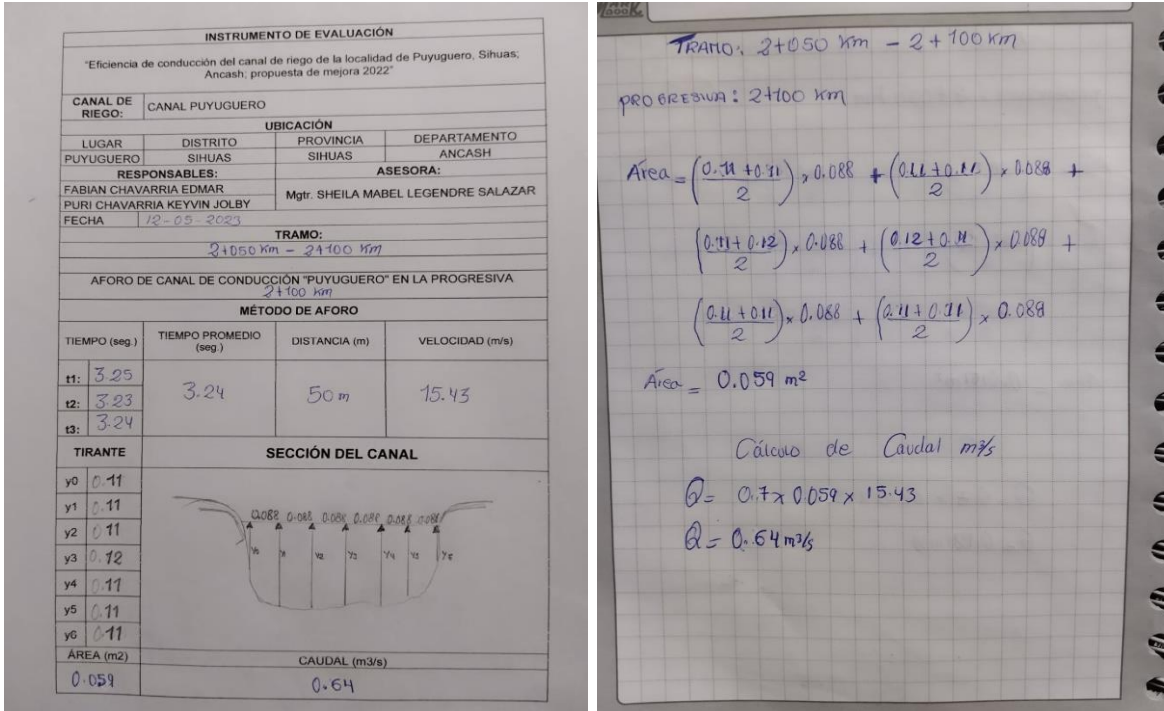 INSTRUMENTO DE EVALUACIÓN
"Eficiencia de conducción del canal de riego de la localidad de Puyuguero, Sihuas; Ancash; propuesta de mejora 2022"
CANAL DE RIEGO: CANAL PUYUGUERO
UBICACIÓN
LUGAR DISTRITO PROVINCIA DEPARTAMENTO
PUYUGUERO SIHUAS SIHUAS ANCASH
RESPONSABLES: ASESORA:
FABIAN CHAVARRIA EDMAR
PURI CHAVARRIA KEYVIN JOLBY
Mgtr. SHEILA MABEL LEGENDRE SALAZAR
FECHA 12-05-2023
TRAMO:
2+050 Km - 2+100 Km
AFORO DE CANAL DE CONDUCCIÓN "PUYUGUERO" EN LA PROGRESIVA
2+100 Km
MÉTODO DE AFORO
TIEMPO (seg.) TIEMPO PROMEDIO (seg.) DISTANCIA (m) VELOCIDAD (m/s)
t1: 3.25
t2: 3.23
t3: 3.24
3.24 50 m 15.43
TIRANTE SECCIÓN DEL CANAL
y0 0.11
y1 0.11
y2 0.11
y3 0.12
y4 0.11
y5 0.11
y6 0.11
0.088 0.088 0.088 0.088 0.088 0.088
ÁREA (m2) CAUDAL (m3/s)
0.059 0.64
TRAMO: 2+050 Km - 2+100 Km
PROGRESIVA: 2+100 Km
Área = (0.11 + 0.11 / 2) x 0.088 + (0.11 + 0.11 / 2) x 0.088 +
(0.11 + 0.12 / 2) x 0.088 + (0.12 + 0.11 / 2) x 0.088 +
(0.11 + 0.11 / 2) x 0.088 + (0.11 + 0.11 / 2) x 0.088
Área = 0.059 m²
Cálculo de Caudal m³/s
Q = 0.7 x 0.059 x 15.43
Q = 0.64 m³/s